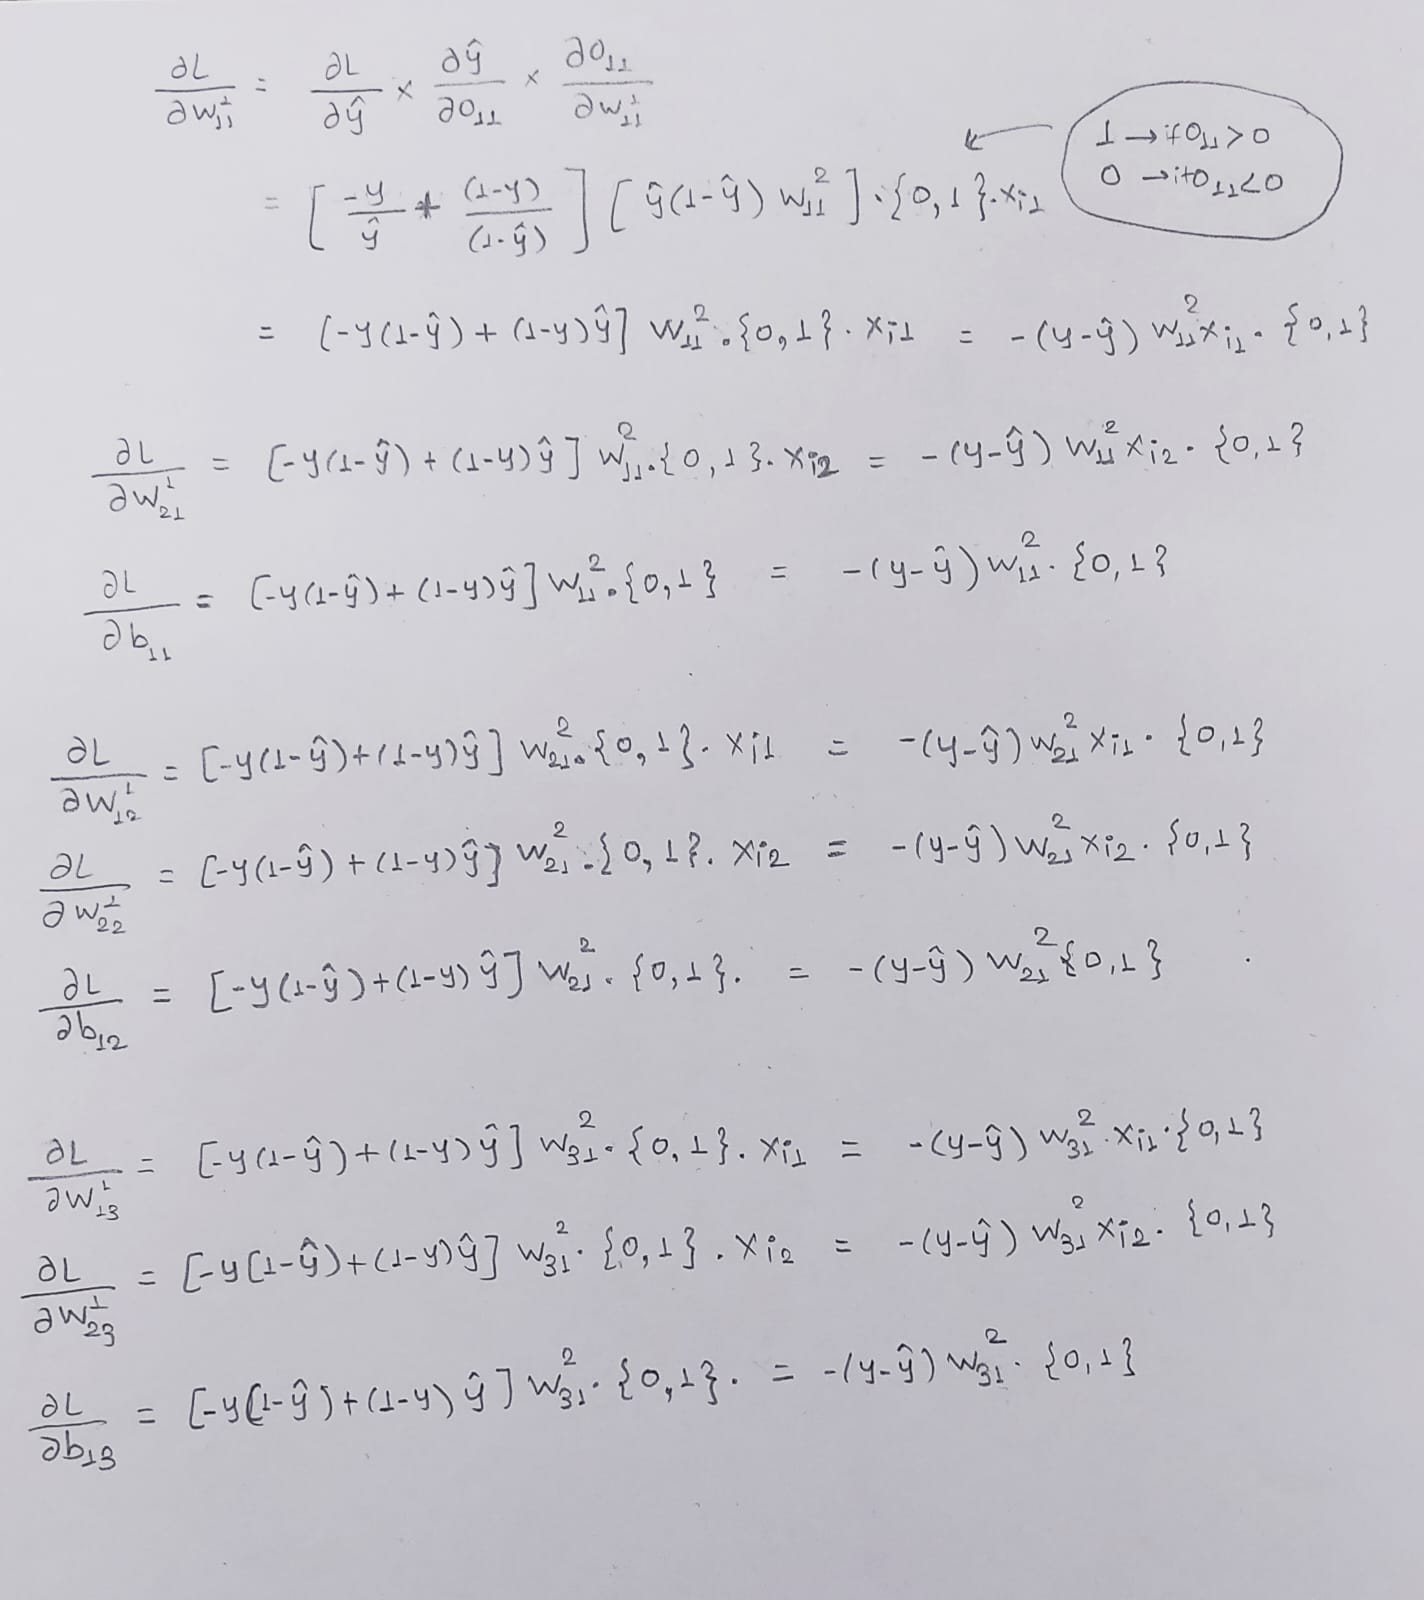 ∂L/∂w₁₁¹ = ∂L/∂ŷ × ∂ŷ/∂O₁₁ × ∂O₁₁/∂w₁₁¹
1 → if O₁₁ > 0
0 → if O₁₁ < 0
= [-y/ŷ + (1-y)/(1-ŷ)] [ŷ(1-ŷ) w₁₁²] · {0,1} · xᵢ₁
= [-y(1-ŷ) + (1-y)ŷ] w₁₁² · {0,1} · xᵢ₁ = -(y-ŷ) w₁₁² xᵢ₁ · {0,1}
∂L/∂w₂₁¹ = [-y(1-ŷ) + (1-y)ŷ] w₁₁² · {0,1} · xᵢ₂ = -(y-ŷ) w₁₁² xᵢ₂ · {0,1}
∂L/∂b₁₁ = [-y(1-ŷ) + (1-y)ŷ] w₁₁² · {0,1} = -(y-ŷ) w₁₁² · {0,1}
∂L/∂w₁₂¹ = [-y(1-ŷ) + (1-y)ŷ] w₂₁² · {0,1} · xᵢ₁ = -(y-ŷ) w₂₁² xᵢ₁ · {0,1}
∂L/∂w₂₂¹ = [-y(1-ŷ) + (1-y)ŷ] w₂₁² · {0,1} · xᵢ₂ = -(y-ŷ) w₂₁² xᵢ₂ · {0,1}
∂L/∂b₁₂ = [-y(1-ŷ) + (1-y)ŷ] w₂₁² · {0,1} · = -(y-ŷ) w₂₁² {0,1}
∂L/∂w₁₃¹ = [-y(1-ŷ) + (1-y)ŷ] w₃₁² · {0,1} · xᵢ₁ = -(y-ŷ) w₃₁² · xᵢ₁ · {0,1}
∂L/∂w₂₃¹ = [-y[1-ŷ) + (1-y)ŷ] w₃₁² · {0,1} · xᵢ₂ = -(y-ŷ) w₃₁² xᵢ₂ · {0,1}
∂L/∂b₁₃ = [-y(1-ŷ) + (1-y)ŷ] w₃₁² · {0,1} · = -(y-ŷ) w₃₁² · {0,1}